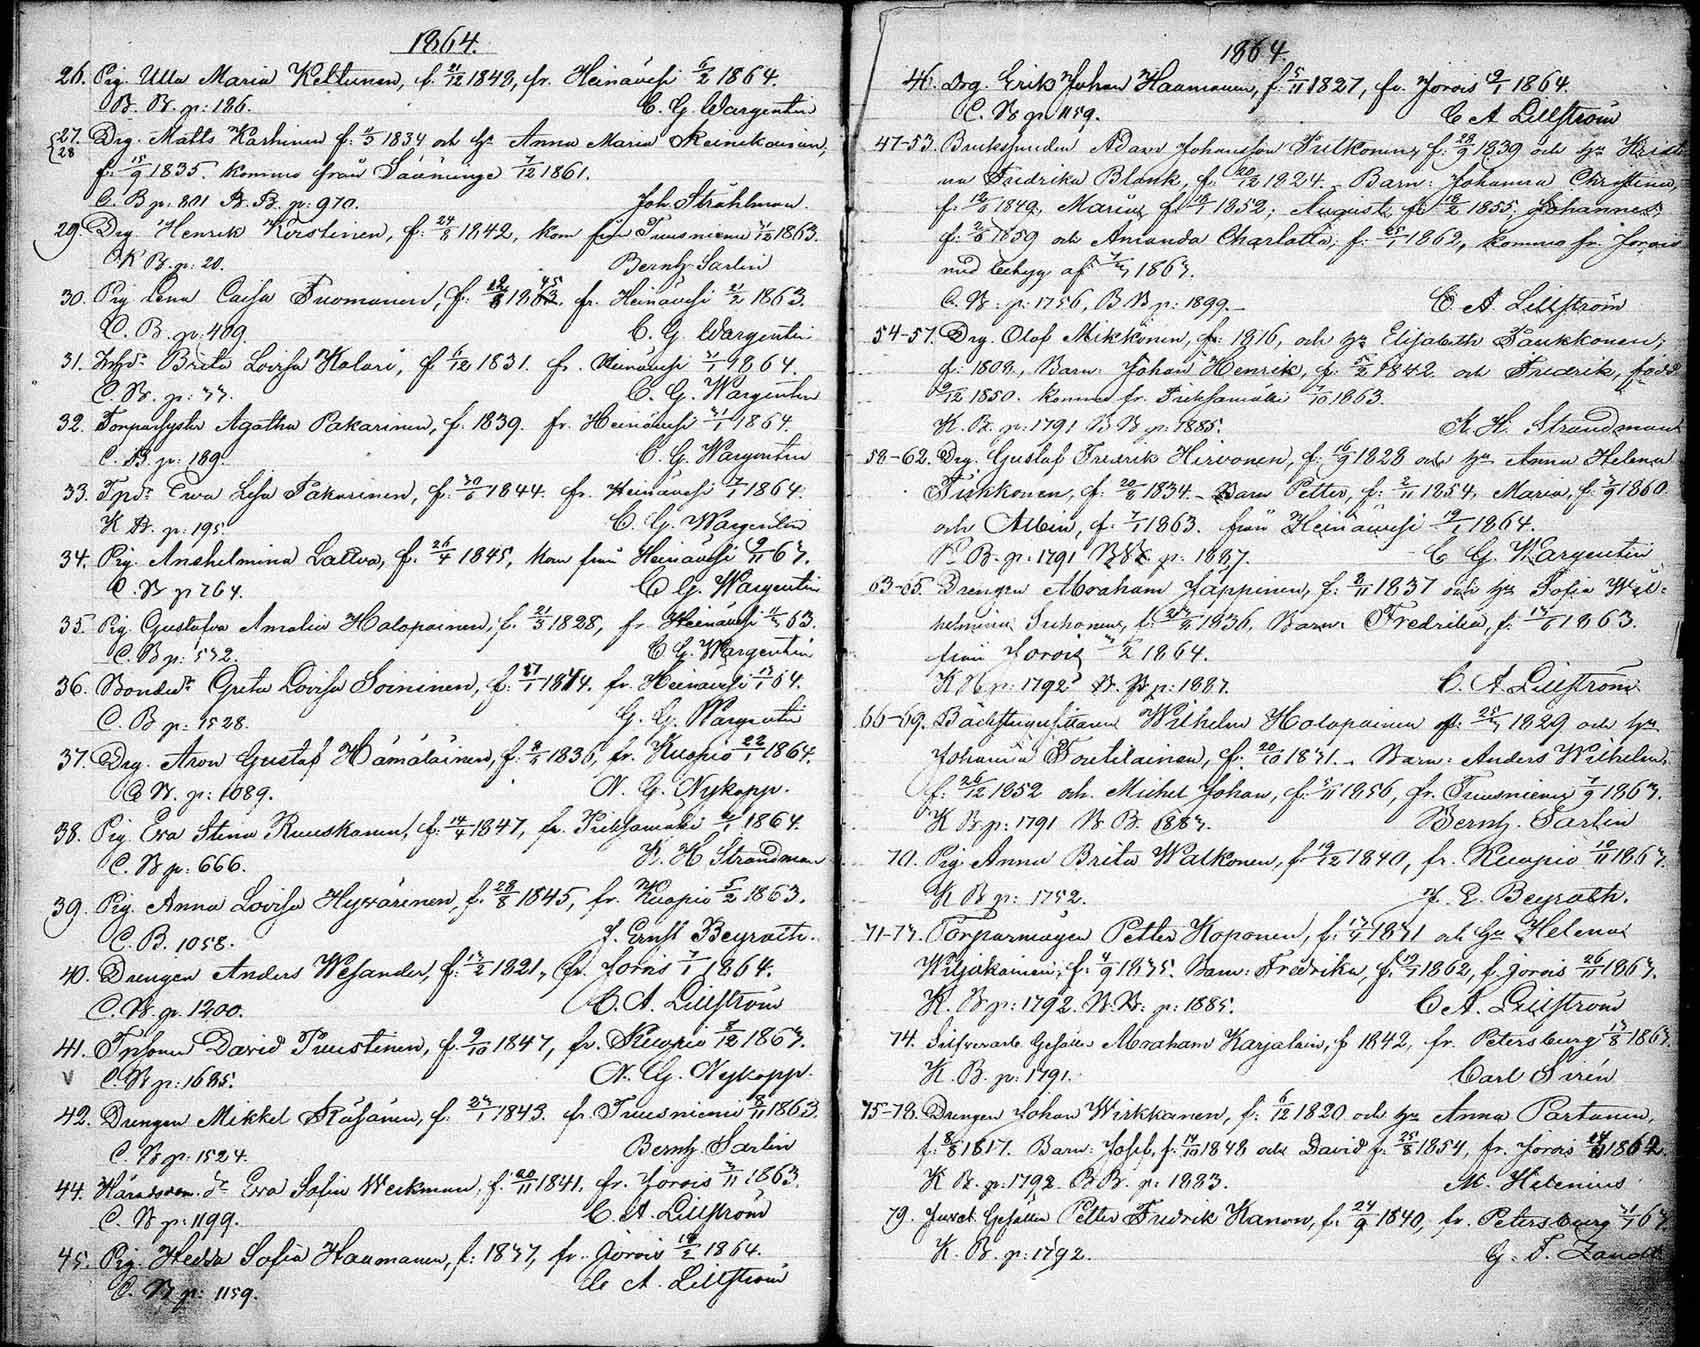 1864.
26. Pig. Ulla Maria Keltunen, f. 21/12 1848, fr. Heinävesi 6/2 1864.
B. B. p: 186. C. G. Wargentin
27. Drg. Matts Karhinen f: 1834 och hu Anna Maria Reinekainen,
28
f. 15/9 1835. komma från Sääminge 7/12 1861.
C. B p: 801 B. B. p: 970. Joh. Stråhlman
29. Drg. Henrik Kerstinen, f: 24/8 1842, kom från Tuusniemi 1863.
K B. p: 20. Bernh. Sarlin
30. Pig Lena Caisa Tuomainen, f: fr. Heinävesi 21/2 1863.
C. B. p: 409. C. G. Wargentin
31. Brita Lovisa Kalari, f 6/12 1831. fr. Heinävesi 1864.
C. B. p: C. G. Wargentin
32. Torparsyster Agatha Pakarinen, f. 1839. fr. Heinävesi 1864.
C. B. p: 189. C. G. Wargentin
33. Tpdr Ewa Lisa Pakarinen, f: 30/6 1844. fr. Heinävesi 1864.
K B. p: 195. C. G. Wargentin
34. Pig. Anshelmina Lattva, f. 26/4 1845, kom från Heinävesi 9/11 63.
C. B p 764. C G. Wargentin
35. Pig. Gustafva Amalia Holopainen, f. 21/3 1828, fr. Heinävesi 63.
C. B p: 532. C G. Wargentin
36. Bondedr Greta Lovisa Soininen, f: fr. Heinävesi 64.
C. B p: 1528. G. G. Wargentin
37. Drg. Aron Gustaf Hämäläinen, f: 1836, fr. Kuopio 22/1 1864.
C B. p: 1089. N. G. Nykopp.
38. Pig. Eva Stina Ruuskanen, f: 14/4 1847, fr. Pieksämäki 1864.
C. B p: 666. K. H Strandman
39. Pig. Anna Lovisa Hyvärinen, f. 28/8 1845, fr. Kuopio 5/2 1863.
C. B. 1058. J. Ernst Beyrath.
40. Drengen Anders Wesander, f: 1821, fr. Jorois 7/1 1864.
C. B. p. 1200. C. A. Lillström
41. Tpsonen David Puustinen, f. 9/10 1847, fr. Kuopio 8/12 1863.
C. B p: 1685. N. G. Nykopp.
42. Drengen Mikkel Räsänen, f: 1843. fr. Tuusniemi 8/11 1863.
C. B p: 1524. Bernh. Sarlin
44. Häradsdm. dr Eva Sofia Weckman, f. 20/11 1841. fr. Jorois 1863.
C. B p: 1199. C. A. Lillström
45. Pig. Hedda Sofia Haumanen, f: 1837, fr. Jorois 1864.
C. B p: 1159. C A. Lillström
1864.
46. Drg. Erik Johan Haamanen, f. 5/11 1827, fr. Jorois 9/1 1864.
C. B p: 1159. C A Lillström
47-53. Bruksmeden Adam Johansson Putkonen, f: 28/9 1839 och hu Kristi-
na Fredrika Blank, f: 20/12 1824. Barn: Johanna Christina,
f: 1849, Maria, f: 1852; August, f: 1855; Johannes,
f: 1859 och Amanda Charlotta, f: 25/1 1862, komma fr. Jorois
med betyg af 1863.
C. B: p: 1756, B B p: 1899. C. A. Lillström
54-57. Drg. Olof Mikkonen, f: 1816, och hu Elisabeth Paukkonen,
f: 1808, Barn: Johan Henrik, f: 1842 och Fredrik, född
9/12 1850. komma fr. Pieksamäki 1863.
K. B. p: 1791 B B p: 1885. K. H. Strandman
58-62. Drg. Gustaf Fredrik Hirvonen, f: 16/9 1828 och hu Anna Helena
Tiikkonen, f: 20/8 1834. Barn Petter, f: 2/11 1854, Maria, f: 1860
och Albin, f. 7/1 1863. från Heinävesi 19/1 1864.
K B. p: 1791 p: 1887. C G. Wargentin
63-65. Drengen Abraham Jäppinen, f: 8/11 1837 och hu Sofia Wil-
helmina Suhonen, f: 1836, Barn: Fredrika, f: 1863.
från Jorois 1864.
K B p: 1792 B. B p: 1887. C. A. Lillström
66-69. Backstugusittaren Wilhelm Holopainen f: 1829 och hu
Johanna Toutilainen, f: 20/10 1831. Barn: Anders Wilhelm,
f: 26/12 1852 och Michel Johan, f: 5/11 1856, fr. Tuusniemi 7/9 1863.
K B p: 1791 B B. 1883. Bernh. Sarlin
70. Pig. Anna Brita Walkonen, f 19/12 1840, fr. Kuopio 1863.
K B p: 1752. J. E. Beyrath.
71-73. Torparmågen Petter Koponen, f: 1831 och hu Helena
Wiljakainen, f: 4/9 1835. Barn: Fredrika, f. 1862, f. Jorois 26/11 1863.
K. B p: 1792. B. B: p: 1885. C A. Lillström
74. Silfverarb. Gesällen Abraham Karjalain, f 1842, fr. Petersburg 1863.
K. B. p: 1791. Carl Sirén
75-78. Drengen Johan Wirkkanen, f: 6/12 1820 och hu Anna Partanen,
f: 8/8 1817. Barn: Josef, f. 1848 och David f: 25/8 1854, fr. Jorois 1862.
K B. p: 1792. B B. p: 1883. M. Hitenius
79. Juvel Gesällen Petter Fredrik Kanon, f. 24/9 1840, fr. Petersburg 63.
K. B. p: 1792. G. F. Zandt